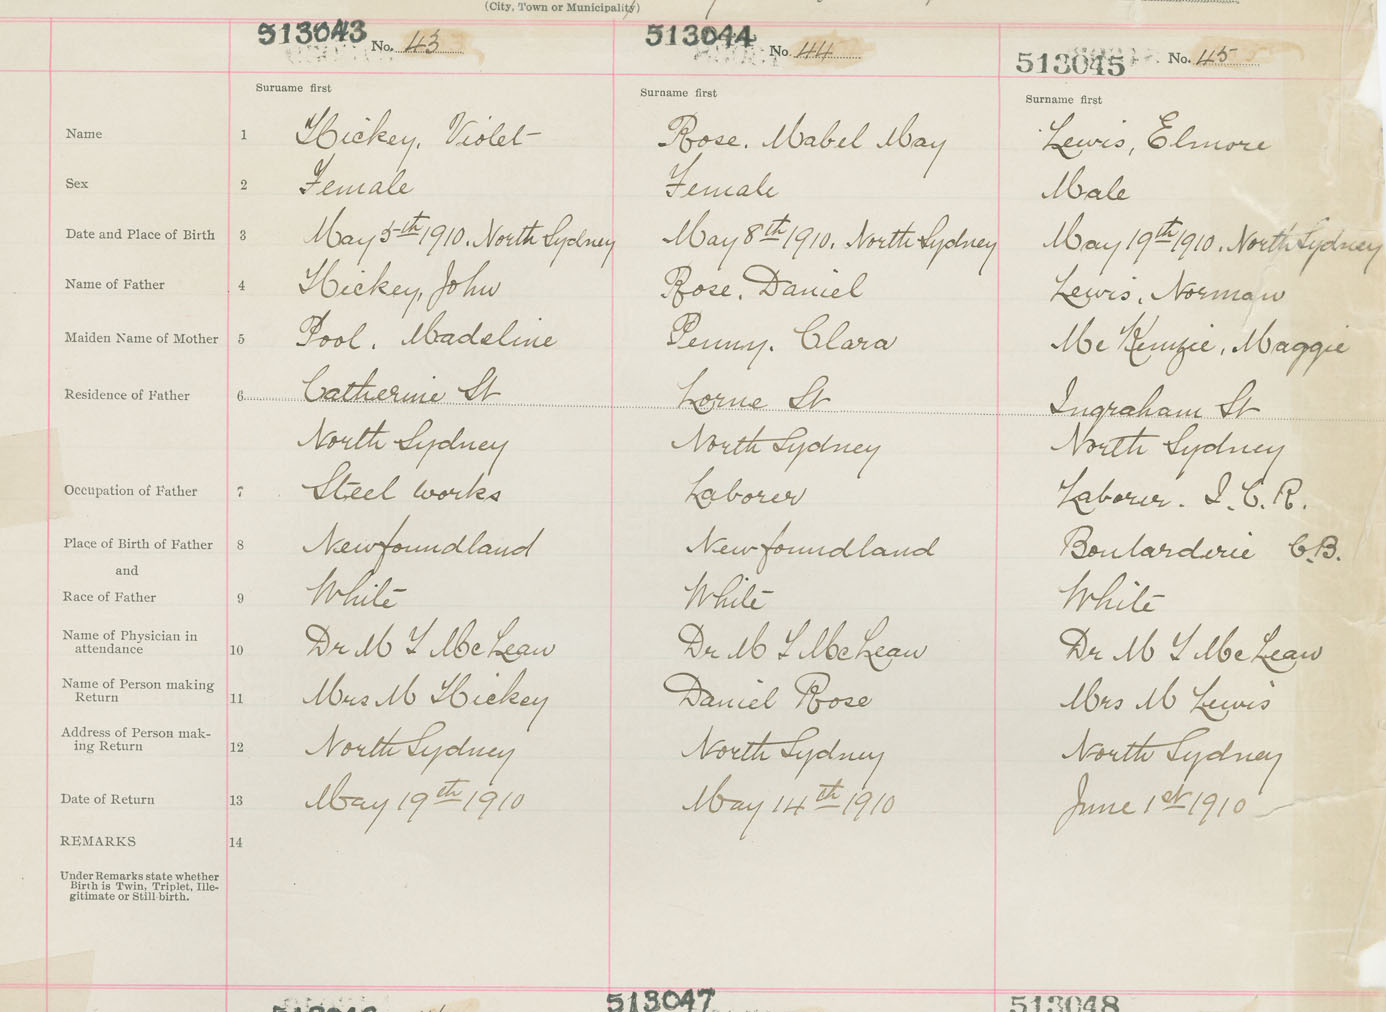 (City, Town or Municipality)
513043 No. 43 513044 No. 44 513045 No. 45
Surname first Surname first Surname first
Name 1 Hickey, Violet Rose. Mabel May Lewis, Elmore
Sex 2 Female Female Male
Date and Place of Birth 3 May 5th 1910. North Sydney May 8th 1910. North Sydney May 19th 1910. North Sydney
Name of Father 4 Hickey, John Rose. Daniel Lewis, Norman
Maiden Name of Mother 5 Pool. Madeline Penny. Clara McKenzie, Maggie
Residence of Father 6 Catherine St Lorne St Ingraham St
North Sydney North Sydney North Sydney
Occupation of Father 7 Steel works Laborer Laborer. I.C.R.
Place of Birth of Father 8 Newfoundland Newfoundland Boularderie C.B.
and
Race of Father 9 White White White
Name of Physician in
attendance 10 Dr M T McLean Dr M T McLean Dr M T McLean
Name of Person making
Return 11 Mrs M Hickey Daniel Rose Mrs M Lewis
Address of Person mak-
ing Return 12 North Sydney North Sydney North Sydney
Date of Return 13 May 19th 1910 May 14th 1910 June 1st 1910
REMARKS 14
Under Remarks state whether
Birth is Twin, Triplet, Ille-
gitimate or Still-birth.
513047 513048